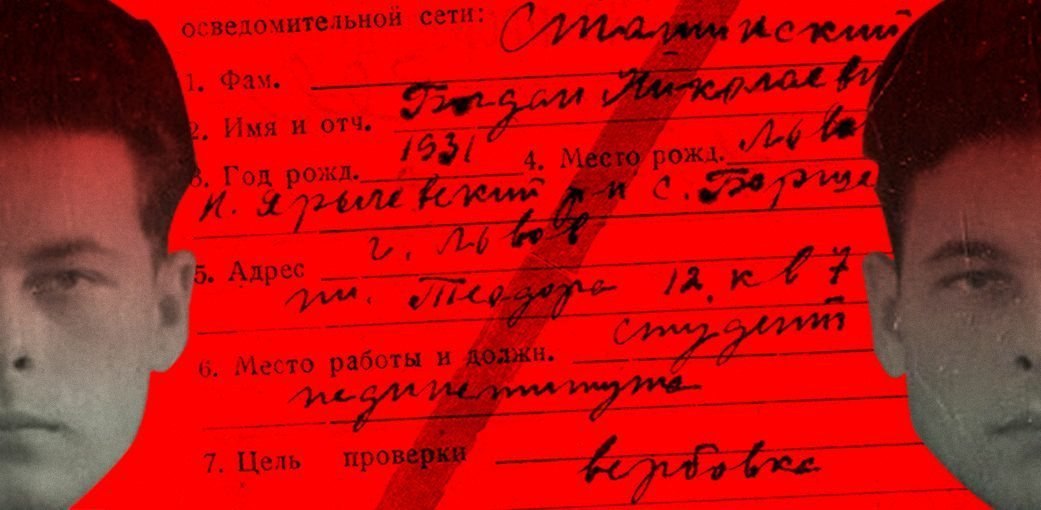 осведомительной сети:
1. Фам. Сташинский
2. Имя и отч. Богдан Николаеви
3. Год рожд. 1931 4. Место рожд. Льво
н. Ярычевский р-н с. Борще
5. Адрес г. Львов
пл. Теодора 12, кв 7
6. Место работы и должн. студент
пединститута
7. Цель проверки вербовка